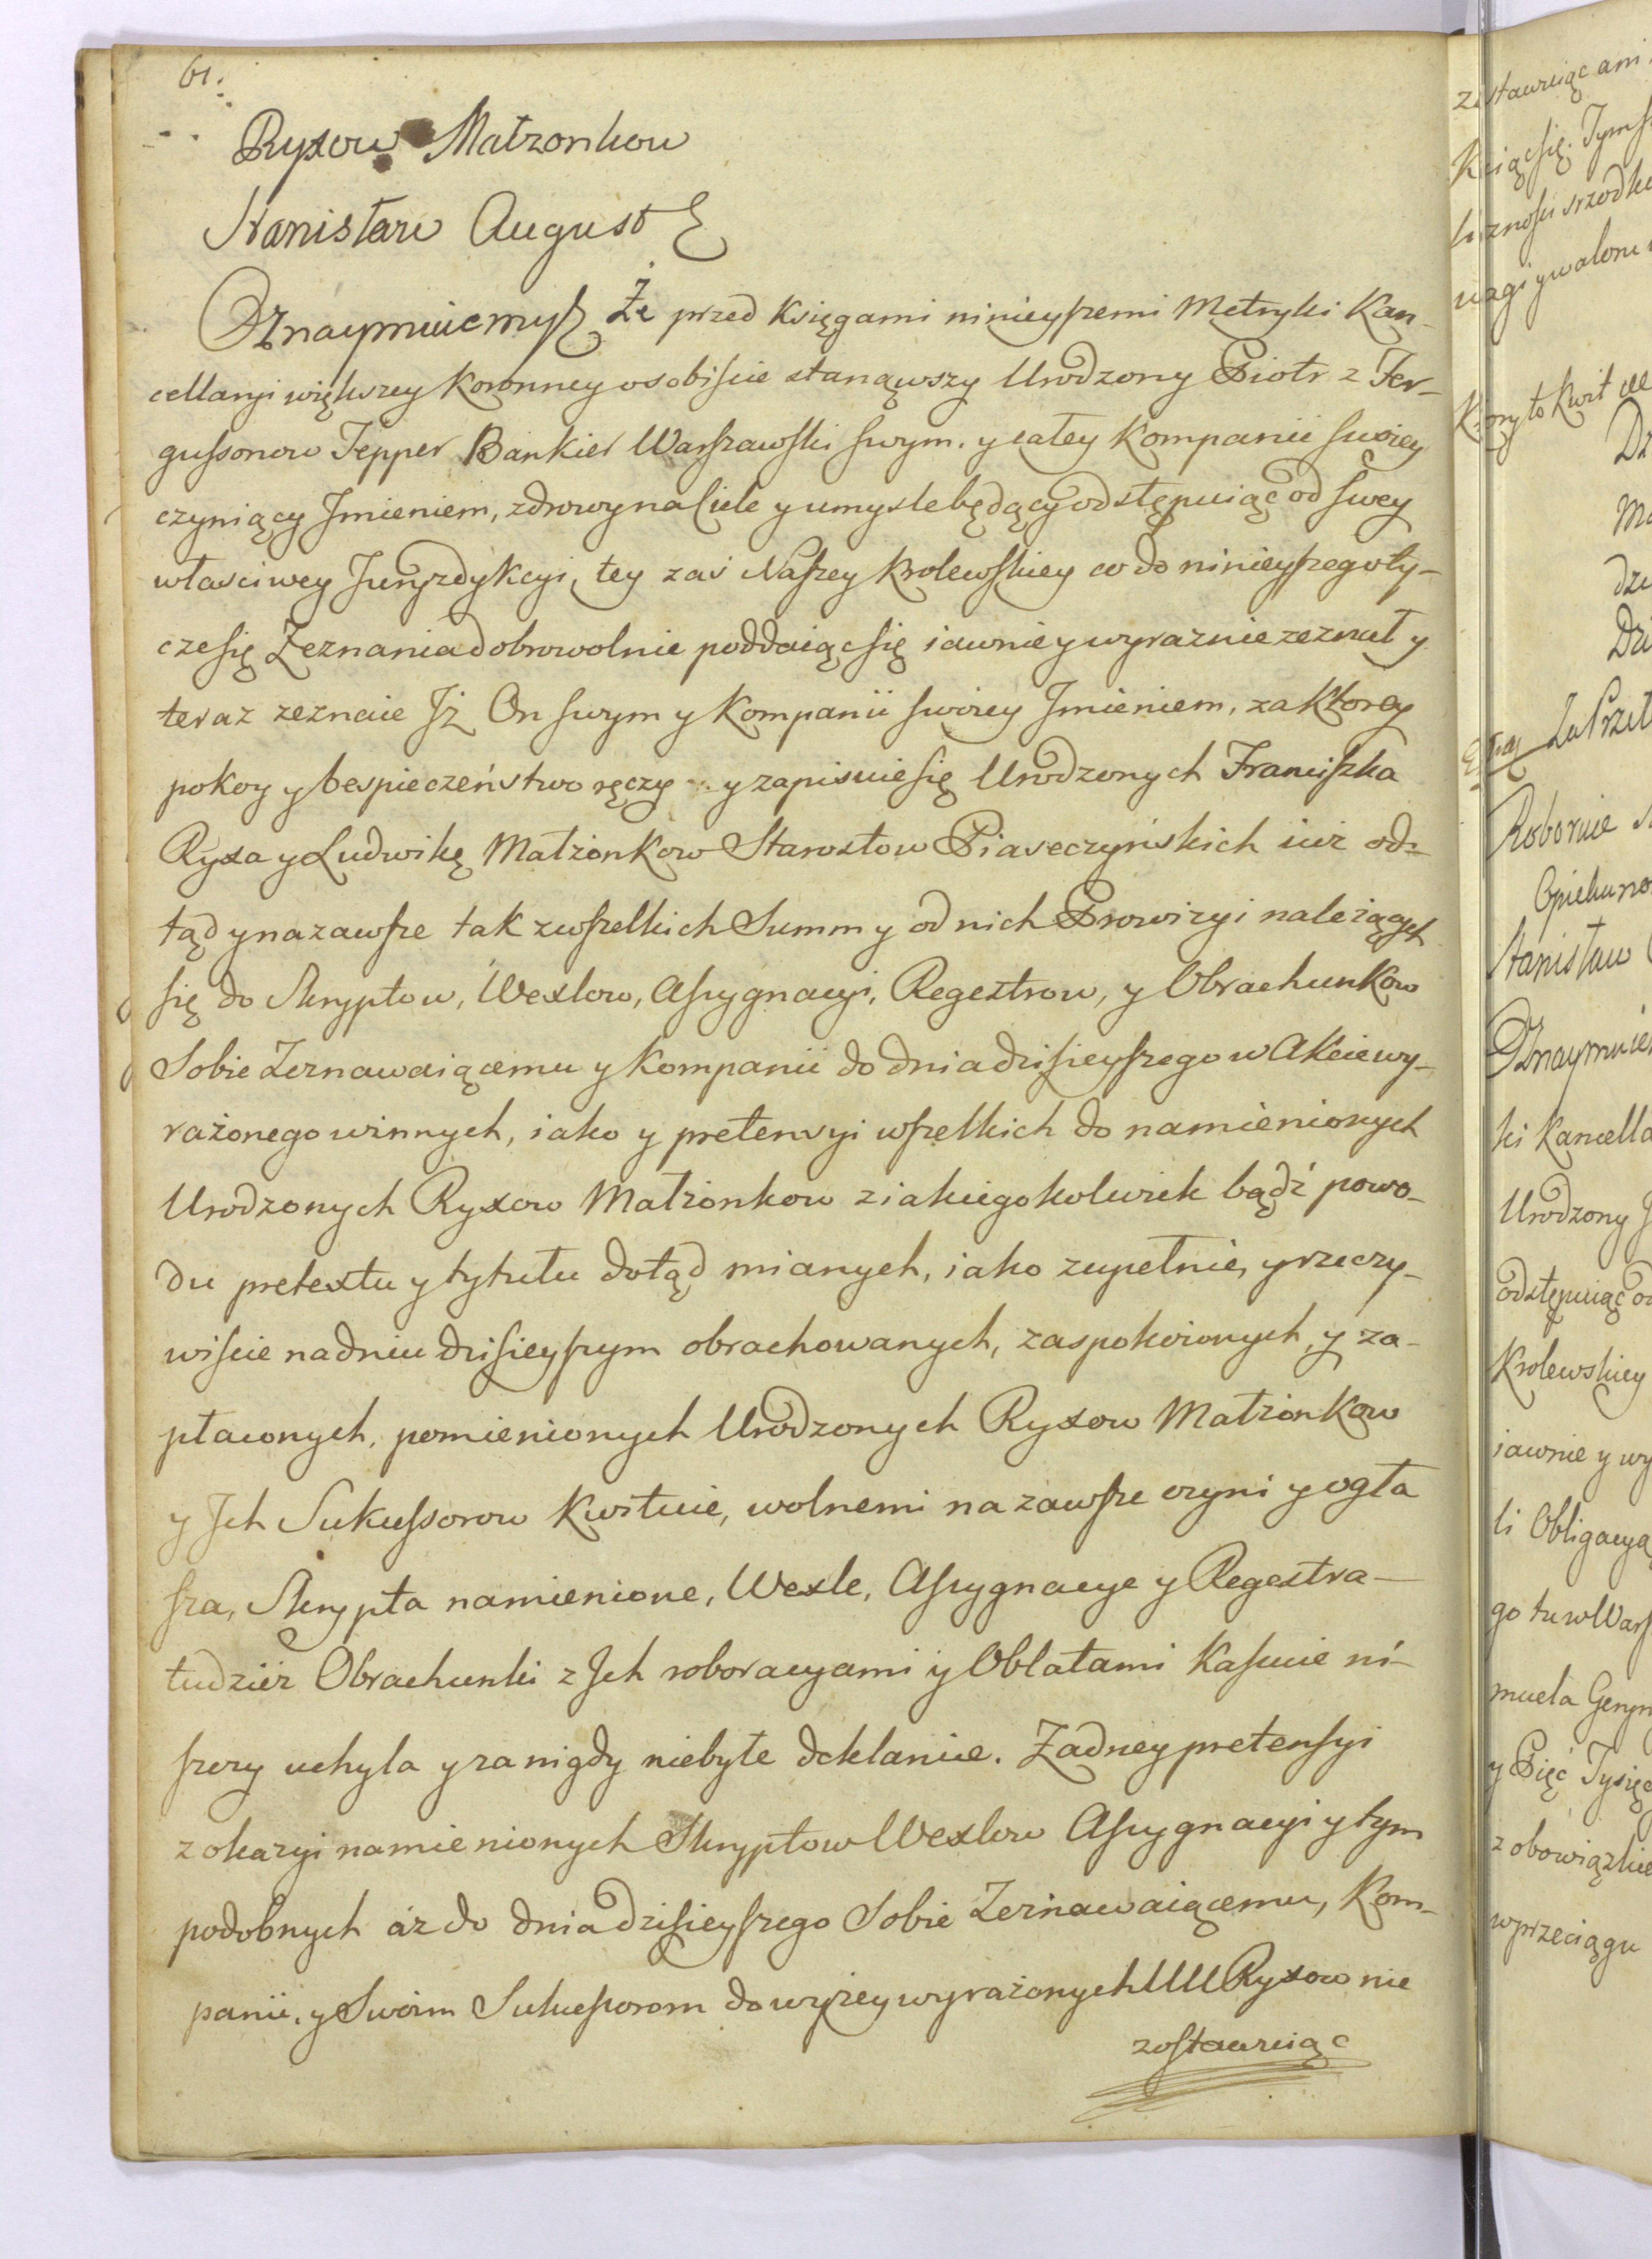 61.
Ryxow Małzonkow
Stanisław August
Oznaymuiemy Że przed Księgami ninieyszemi Metryki Kan-
cellaryi większey Koronney osobiscie stanąwszy Urodzony Piotr z Fer-
gussonow Tepper Bankier Warszawski swym. y całey Kompanii swoiey
czyniący Jmieniem, zdrowy na Ciele y umysle będący odstępuiąc od swey
właściwey Juryzdykcyi, tey zaś Naszey Krolewskiey co do ninieyszego ty-
cze się Zeznania dobrowolnie poddaiąc się iawnie y wyraznie zeznał y
teraz zeznaie Jż On swym y Kompanii swoiey Jmieniem, za ktorey
pokoy y bespieczeństwo ręczy y zapisuie się Urodzonych Franciszka
Ryxa y Ludwikę Małżonkow Starostow Piaseczyńskich iuż od-
tąd y na zawsze tak z wszelkich Summ y od nich Prowizyi należących
się do Skryptow, Wexlow, Assygnacyi, Regestrow, y Obrachunkow
Sobie Zeznawaiącemu y Kompanii do dnia dzisieyszego w Akcie wy-
rażonego winnych, iako y pretensyi wszelkich do namienionych
Urodzonych Ryxow Małżonkow z iakiegokolwiek bądź powo-
du pretextu y tytułu dotąd mianych, iako zupełnie, y rzeczy-
wiscie na dniu dzisieyszym obrachowanych, zaspokoionych, y za-
płaconych, pomienionych Urodzonych Ryxow Małżonkow
y Jch Sukussorow Kwituie, wolnemi na zawsze czyni y ogła
sza, Skrypta namienione, Wexle, Assygnacye y Regestra-
tudzież Obrachunki z Jch roboracyami y Oblatami Kassuie ni-
szczy uchyla y za nigdy niebyłe deklaruie. Żadney pretensyi
z okazyi namienionych Skryptow Wexlow Assygnacyi y tym
podobnych áz do dnia dzisieyszego Sobie Zeznawaiącemu, Kom-
panii. y Swoim Sukcessorom do wyżey wyrażonych UU Ryxow nie
zostawuiąc
zostawuiąc ani
Tym
uwagi y waloru
Ktory to Kwit
Stanisław
Oznaymuiem
ki Kancella
Urodzony J
odstępuiąc od
Krolewskiey
iawnie y wy
li Obligacyą
go tu w Wars
muela
y Pięć Tysięc
z obowiązkie
w przeciągu